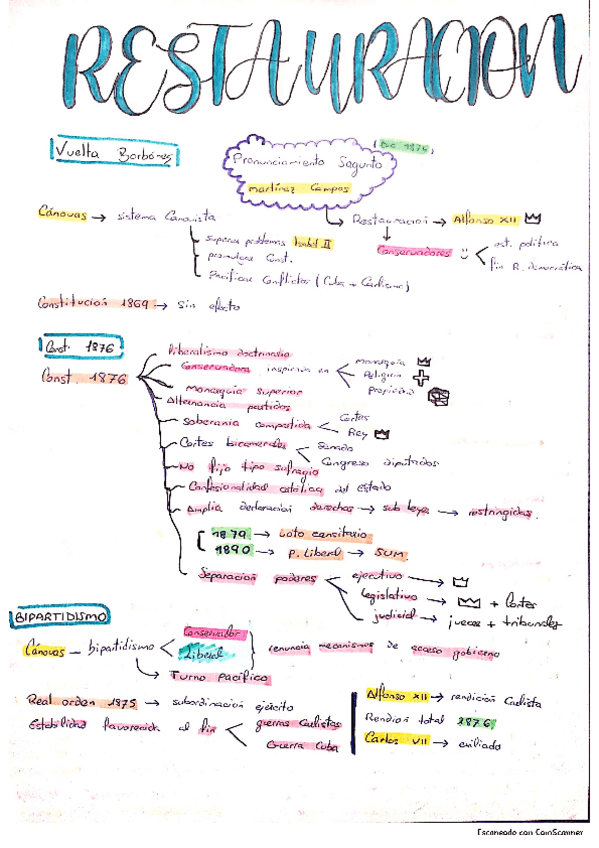 RESTAURACION
Vuelta Borbónes
Dic 1874
Pronunciamiento Sagunto
martínez Campos
Cánovas → sistema Canovista
→ Restauración → Alfonso XII
superar problemas Isabel II
promulgar Const.
Pacificar Conflictos (Cuba + Carlismo)
Conservadores :) < est. política
fin R. democrática
Constitución 1869 → sin efecto
Const. 1876
Const. 1876
Liberalismo doctrinario
Conservadora inspirada en < Monarquía
Religión
Propiedad
Monarquía superior
Alternancia partidos
Soberanía compartida < Cortes
Rey
Cortes bicamerales < Senado
Congreso diputados
No fijo tipo sufragio
Confesionalidad católica del Estado
Amplia declaración derechos → sub leyes → restringidos.
1879 → Voto censitario
1890 → P. Liberal → SUM.
Separación poderes < ejecutivo →
legislativo → + Cortes
judicial → jueces + tribunales
BIPARTIDISMO
Cánovas — bipartidismo < Conservador
Liberal
renuncia mecanismos de acceso gobierno
→ Turno pacífico
Real orden 1875 → subordinación ejército
Estabilidad favorecida al fin < guerras Carlistas
Guerra Cuba
Alfonso XII → rendición Carlista
Rendión total 1876
Carlos VII → exiliado
Escaneado con CamScanner